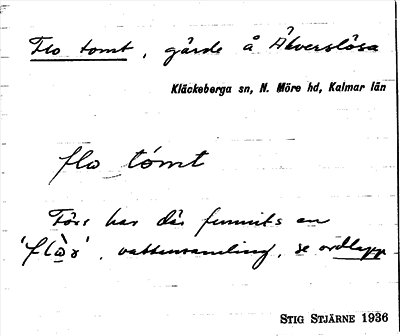 Flo tomt, gärde å Åkverslösa
Kläckeberga sn, N. Möre hd, Kalmar län
flo tómt
Förr har där funnits en
'flò̤r', vattensamling, se ordlapp
STIG STJÄRNE 1936